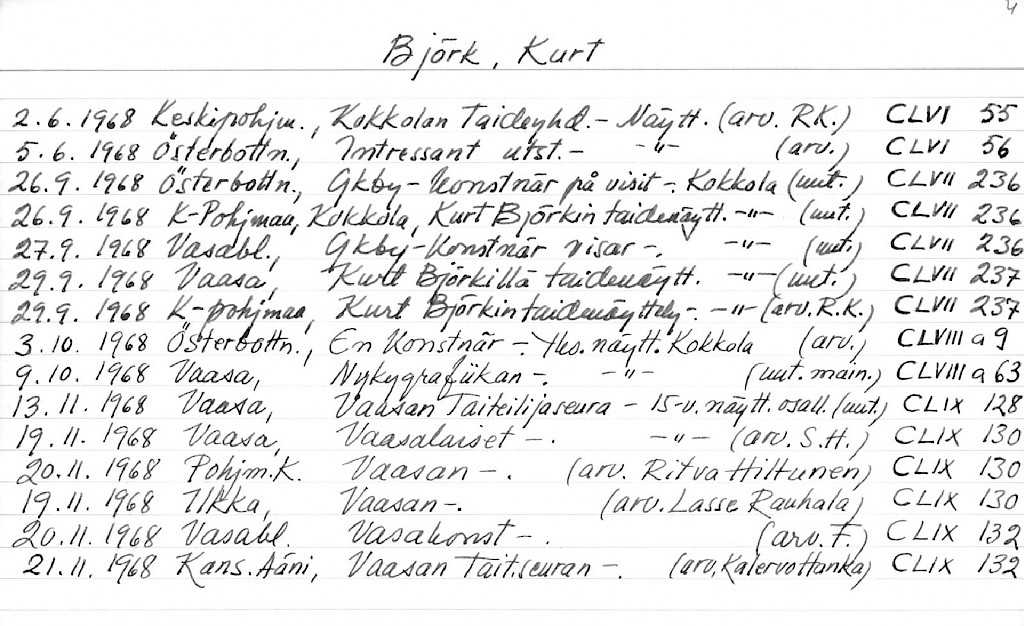 4
Björk, Kurt
2.6.1968 Keskipohjm., Kokkolan Taideyhd.- Näytt. (arv. R.K.) CLVI 55
5.6.1968 Österbottn., Intressant utst.- -"- (arv.) CLVI 56
26.9.1968 Österbottn., Gkby-konstnär på visit -. Kokkola (uut.) CLVII 236
26.9.1968 K-Pohjmaa, Kokkola, Kurt Björkin taidenäytt. -"- (uut.) CLVII 236
27.9.1968 Vasabl., Gkby-Konstnär visar -. -"- (uut.) CLVII 236
29.9.1968 Vaasa, Kurt Björkillä taidenäytt. -"- (uut.) CLVII 237
29.9.1968 K-pohjmaa, Kurt Björkin taidenäyttely-. -"- (arv. R.K.) CLVII 237
3.10.1968 Österbottn., En Konstnär -. Yks. näytt. Kokkola (arv.) CLVIII a 9
9.10.1968 Vaasa, Nykygrafiikan -. -"- (uut. main.) CLVIII a 63
13.11.1968 Vaasa, Vaasan Taiteilijaseura - 15-v. näytt. osall. (uut.) CLIX 128
19.11.1968 Vaasa, Vaasalaiset -. -"- (arv. S.H.) CLIX 130
20.11.1968 Pohjm.K. Vaasan -. (arv. Ritva Hiltunen) CLIX 130
19.11.1968 Ilkka, Vaasan -. (arv. Lasse Rauhala) CLIX 130
20.11.1968 Vasabl. Vasakonst -. (arv. F.) CLIX 132
21.11.1968 Kans.Ääni, Vaasan Tait.seuran -. (arv. Kalervo Hanka) CLIX 132